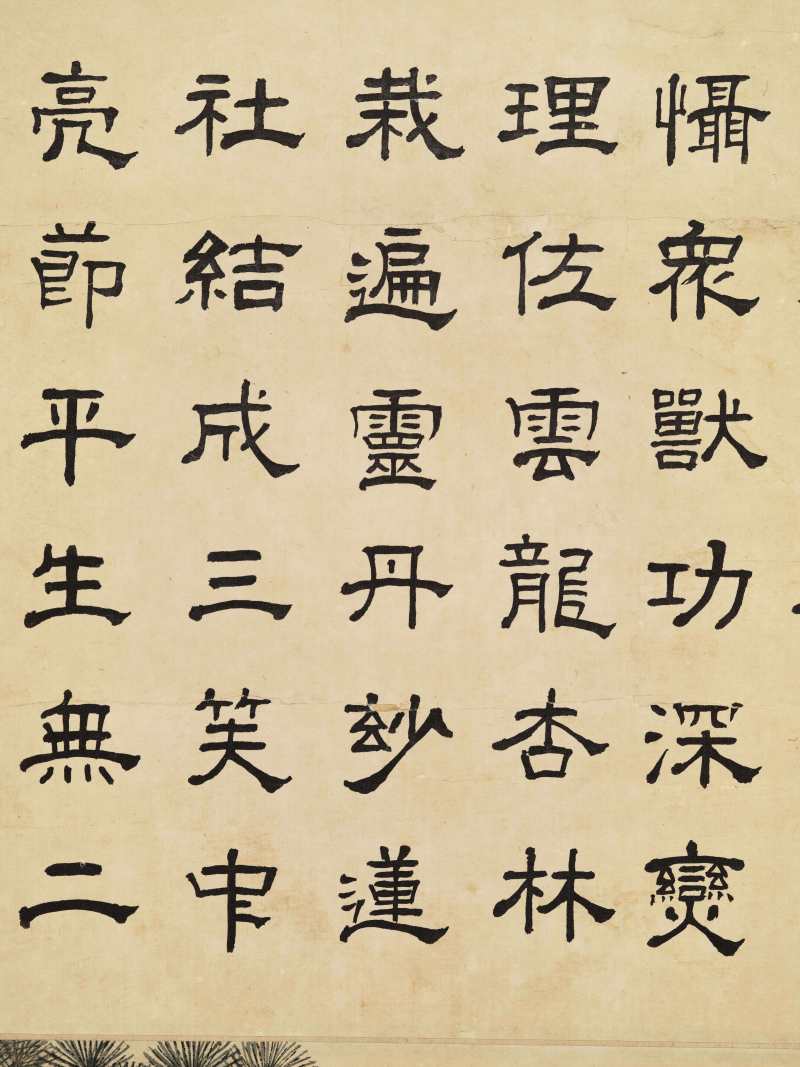 懾眾獸功深燮
理佐雲龍杏林
栽遍靈丹妙蓮
社結成三笑中
亮節平生無二